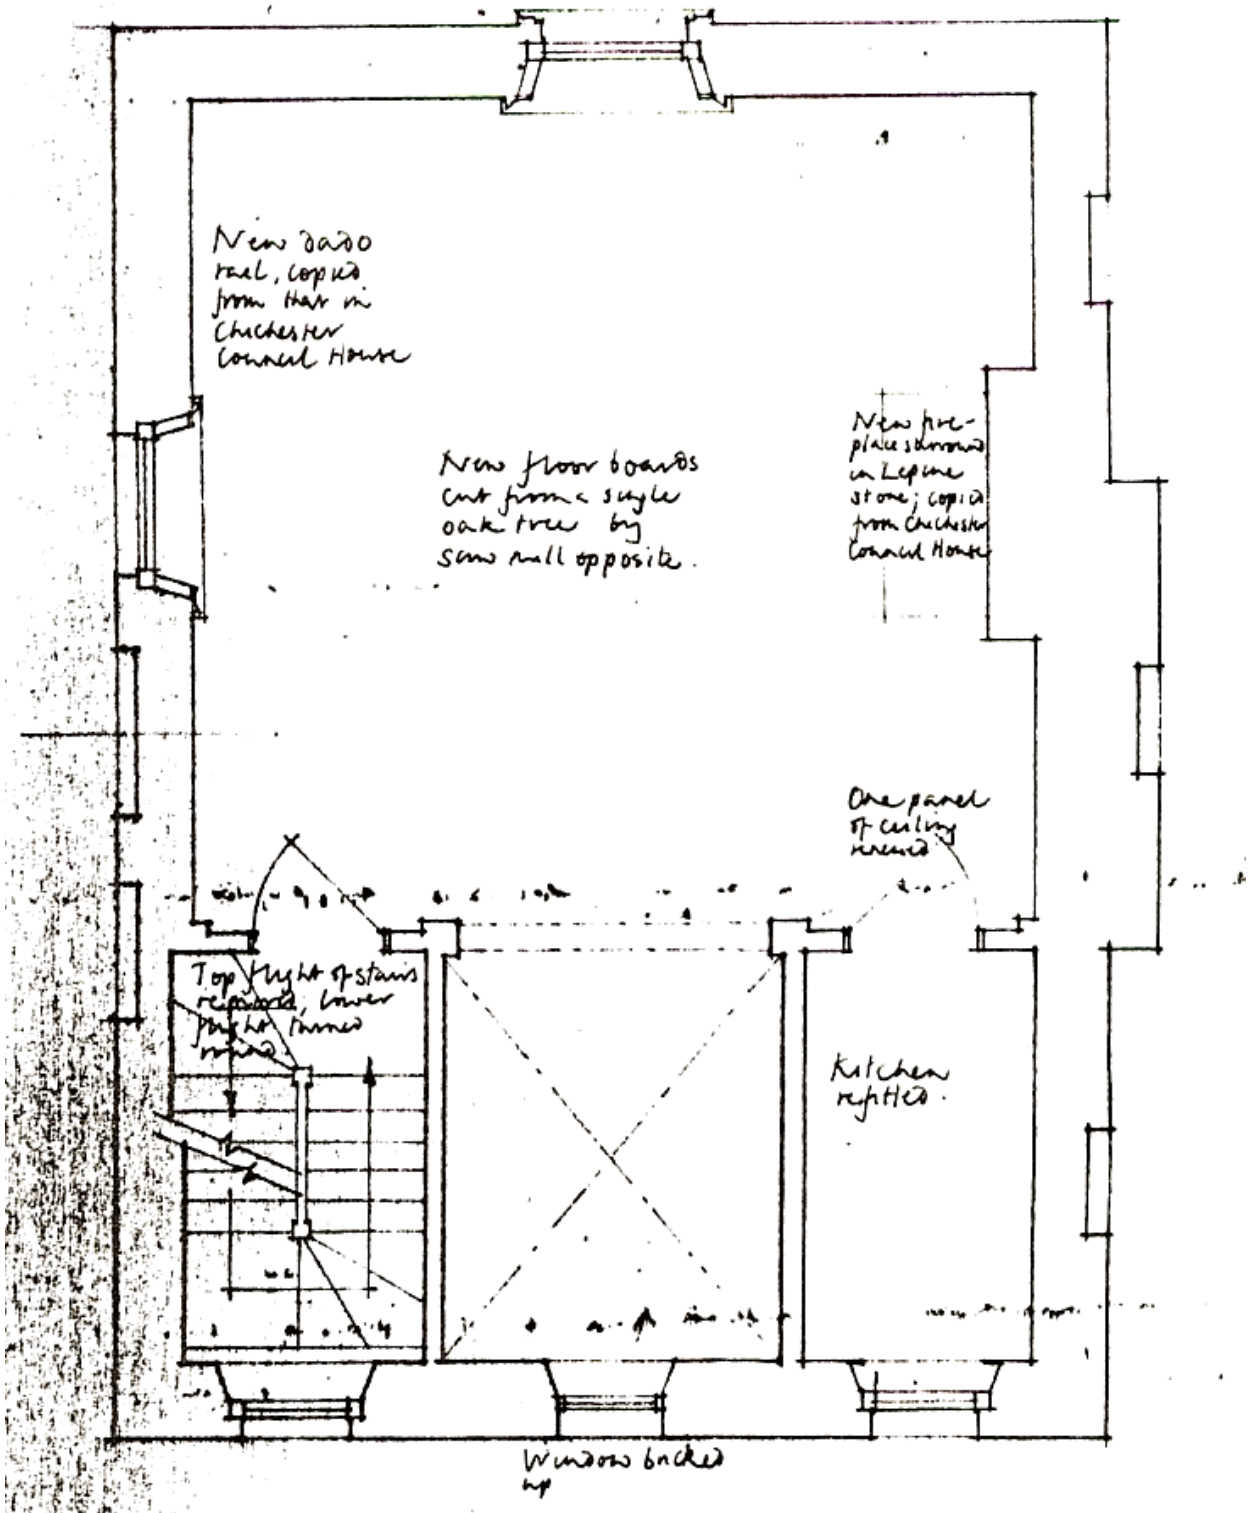 New dado
rail, copied
from that in
Chichester
Council House
New floor boards
cut from a single
oak tree by
saw mill opposite.
New fire-
place surround
in Lepine
stone; copied
from Chichester
Council House
One panel
of ceiling
renewed
Top flight of stairs
removed, lower
flight turned
round.
Kitchen
refitted.
Window bricked
up